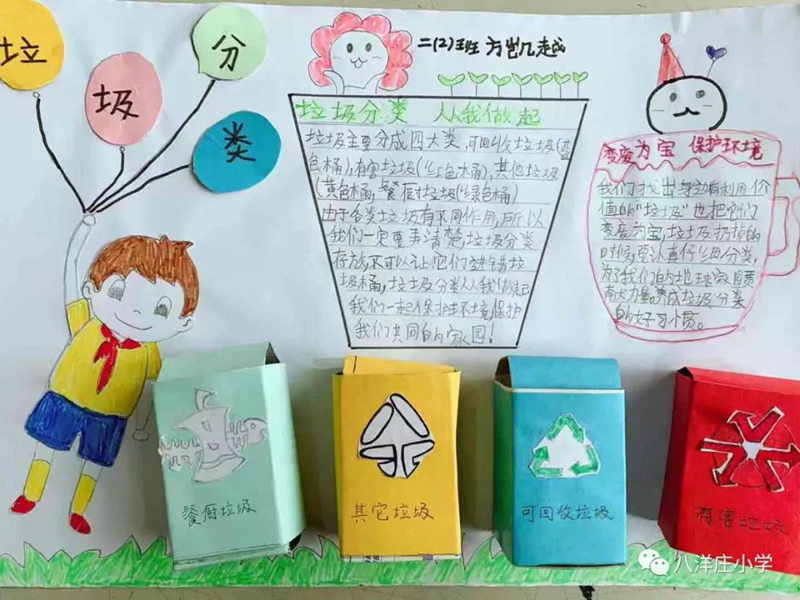 垃
圾
分
类
二(2)班
垃圾分类 从我做起
垃圾主要分成四大类,可回收垃圾(蓝
色桶),有害垃圾(红色桶),其他垃圾
(黄色桶,餐厨垃圾(绿色桶)
由于各类垃圾有不同作用,所以
我们一定要弄清楚垃圾分类
存放,不可以让它们进错垃
圾桶,垃圾分类从我做起
我们一起保护环境,保护
我们共同的家园!
变废为宝 保护环境
我们找出身边有利用价
值的“垃圾”也把它们
变废为宝,垃圾扔掉的
时候,要认真仔细分类,
为了我们的地球家园贡
献力量。养成垃圾分类
的好习惯。
餐厨垃圾
其它垃圾
可回收垃圾
有害垃圾
八洋庄小学